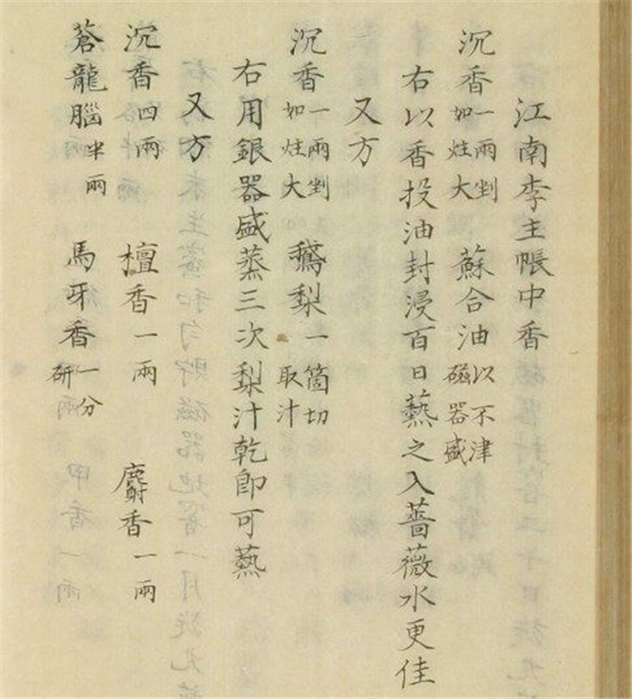 江南李主帳中香
沉香一兩剉如炷大　蘇合油以不津磁器盛
右以香投油封浸百日爇之入薔薇水更佳
又方
沉香一兩剉如炷大　鵝梨一箇切取汁
右用銀器盛蒸三次梨汁乾即可爇
又方
沉香四兩　檀香一兩　麝香一兩
蒼龍腦半兩　馬牙香一分研